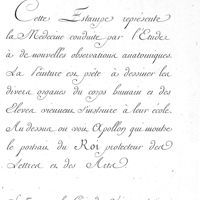 Cette Estampe représente
la Médecine conduite par l'Etude
à de nouvelles observations anatomiques.
La Peinture est prête à dessiner les
divers organes du corps humain et des
Eleves viennent s'instruire à leur école.
Au dessus on voit Apollon qui montre
le portrait du Roi protecteur des
Lettres et des Arts